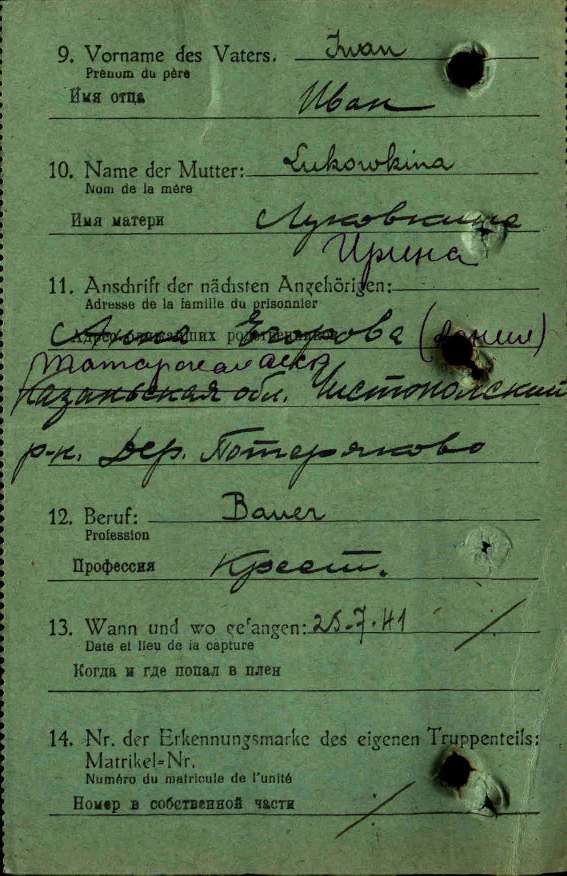 9. Vorname des Vaters: Iwan
Prénom du père
Имя отца Иван
10. Name der Mutter: Lukowkina
Nom de la mère
Имя матери Луковкина
Ирина
11. Anschrift der nächsten Angehörigen:
Adresse de la famille du prisonnier
Егорова
Казаньская обл. Чистополский
р-н. Дер. Потеряково
12. Beruf: Bauer
Profession
Профессия Крест.
13. Wann und wo gefangen: 25.7.41 /
Date et lieu de la capture
Когда и где попал в плен
14. Nr. der Erkennungsmarke des eigenen Truppenteils:
Matrikel=Nr.
Numéro du matricule de l'unité
Номер в собственной части /